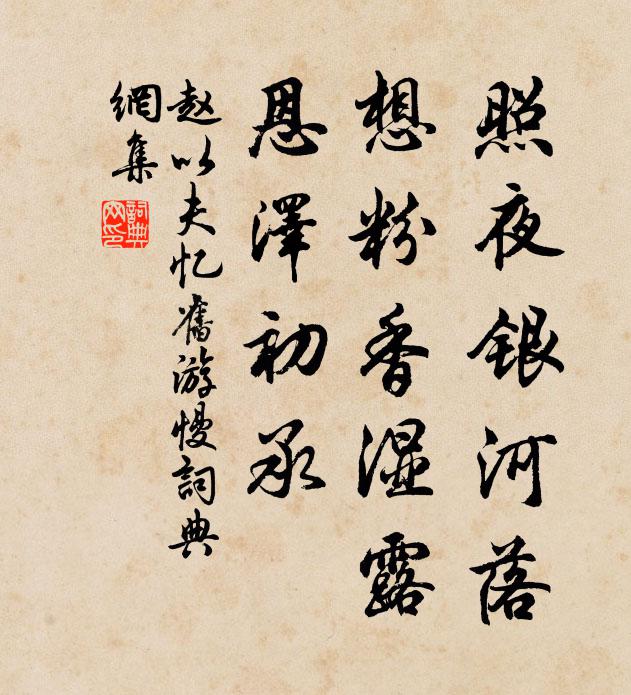 照夜银河落
想粉香湿露
恩澤初承
赵以夫忆舊游慢詞典
網集
詞典
网印